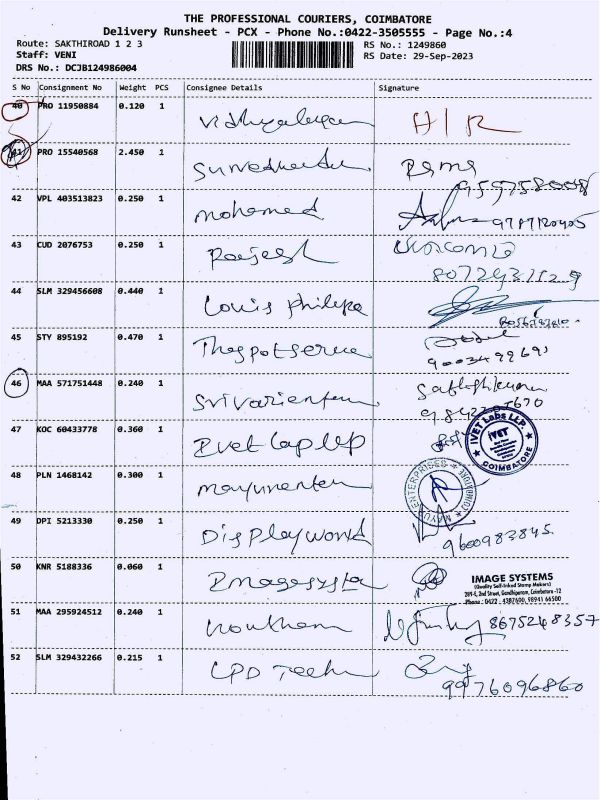 THE PROFESSIONAL COURIERS, COIMBATORE
Delivery Runsheet - PCX - Phone No.:0422-3505555 - Page No.:4
Route: SAKTHIROAD 1 2 3
RS No.: 1249860
Staff: VENI
RS Date: 29-Sep-2023
DRS No.: DCJB124986004
S No Consignment No Weight PCS Consignee Details Signature
40 PRO 11950884 0.120 1 H/R
41 PRO 15540568 2.450 1
959758008
42 VPL 403513823 0.250 1 mohamed
43 CUD 2076753 0.250 1 Rajesh
44 SLM 329456608 0.440 1 Louis philipe
45 STY 895192 0.470 1
9003499691
46 MAA 571751448 0.240 1
47 KOC 60433778 0.360 1 Ivet Lap LLP
iVET Labs LLP.
iVET
COIMBATORE
48 PLN 1468142 0.300 1
MAYU ENTERPRISES
COIMBATORE
49 DPI 5213330 0.250 1 Displayworld
9600983845
50 KNR 5188336 0.060 1
IMAGE SYSTEMS
(Quality Self-Inked Stamp Makers)
209-E, 2nd Street, Gandhipuram, Coimbatore -12
Phone : 0422 - 4387600, 98941 66500
51 MAA 295924512 0.240 1 8675248357
52 SLM 329432266 0.215 1 LPD Tech
9976096860